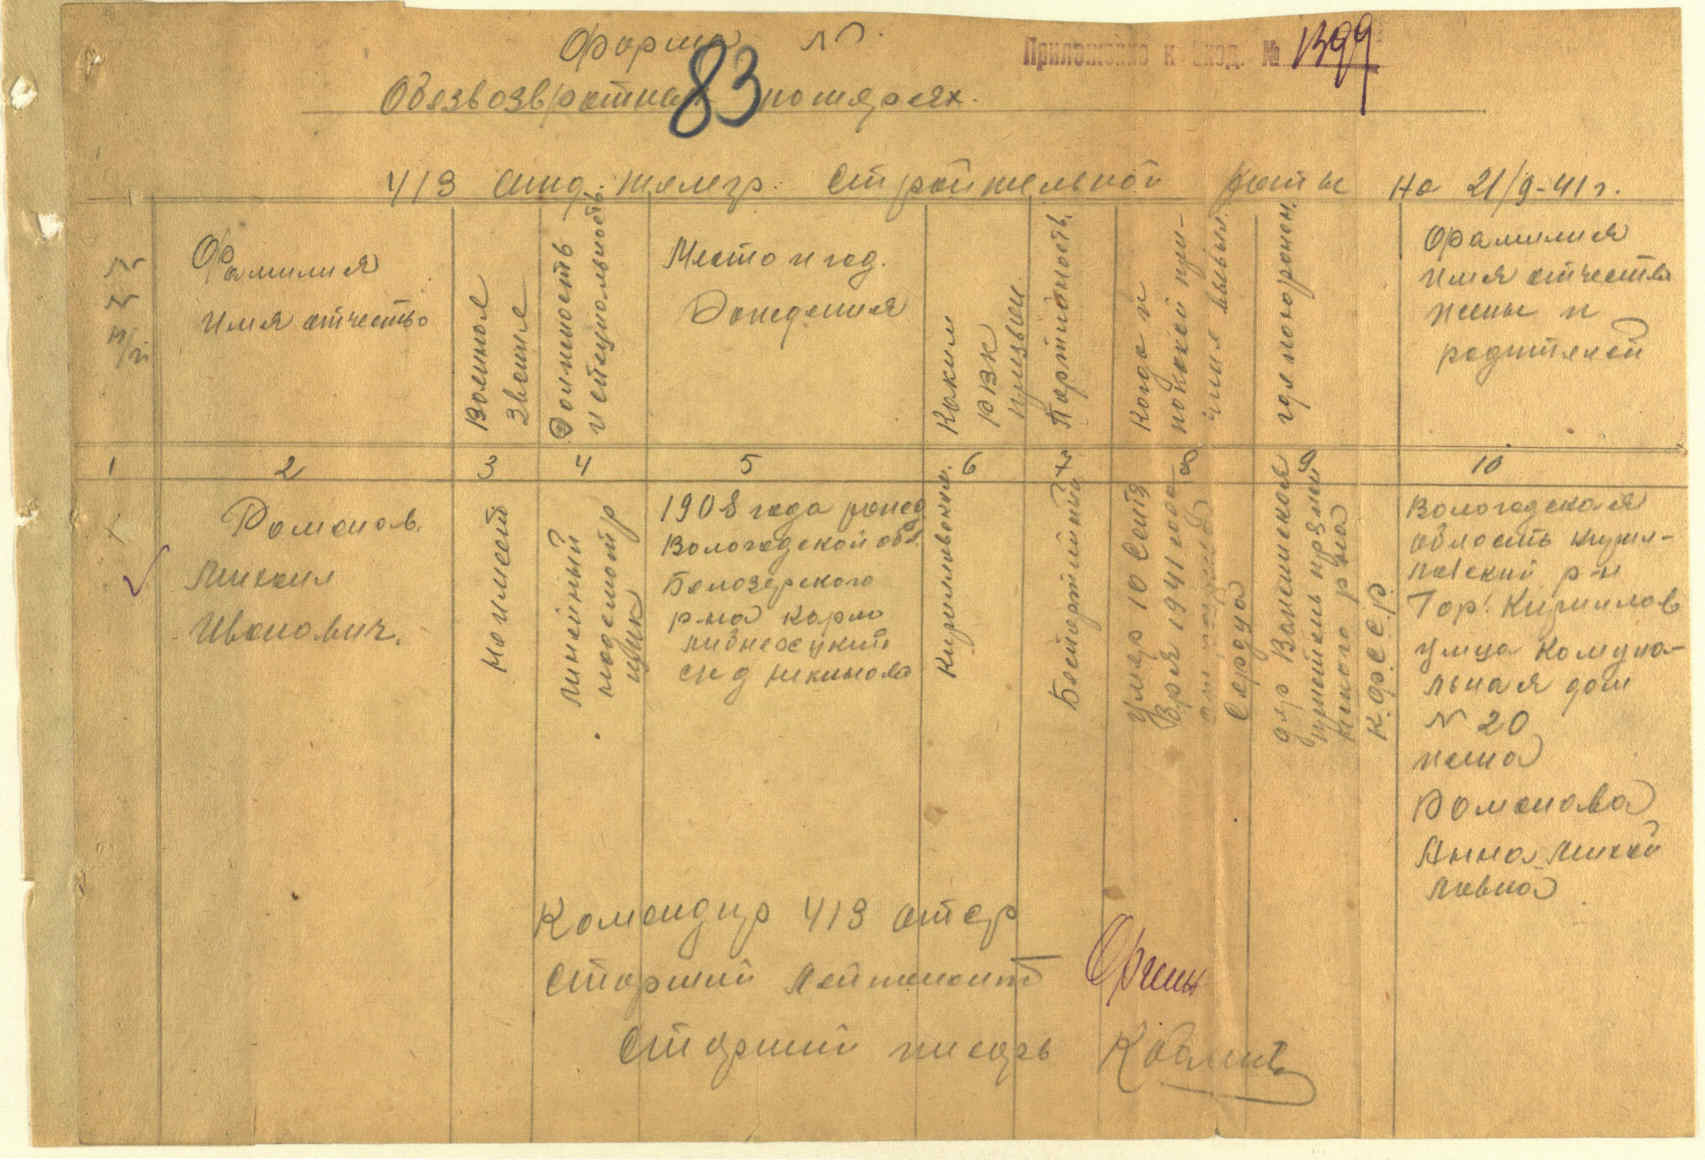 Форма №
Приложение к вход. № 1399
О безвозвратных потерях.
83
413 отд. железр. строительной роты на 21/9-41 г.
№ № п/п
Фамилия
имя отчество
Военное
звание
Должность
и специальность
Место и год.
Рождения
Каким
РВК
призван
Партийность
Когда и
по какой при-
чине выбыл
где похоронен.
Фамилия
имя отчество
жены и
родителей
1 2 3 4 5 6 7 8 9 10
1
Романов.
Михаил
Иванович.
линейный
надсмотр
щик
1908 года рожд
Вологодской обл.
Белозерского
р-на
Кирилловским
Беспартийный
Умер 10 Сентя
бря 1941 года
от
Сердца
К.Ф.С.С.Р.
Вологодская
область Кирил-
ловский р-н
Гор. Кириллов
улица Комуна-
льная дом
№ 20
жена
Романова
Анна Михай
ловна
Командир 413 отср
Старший лейтенант
Старший писарь